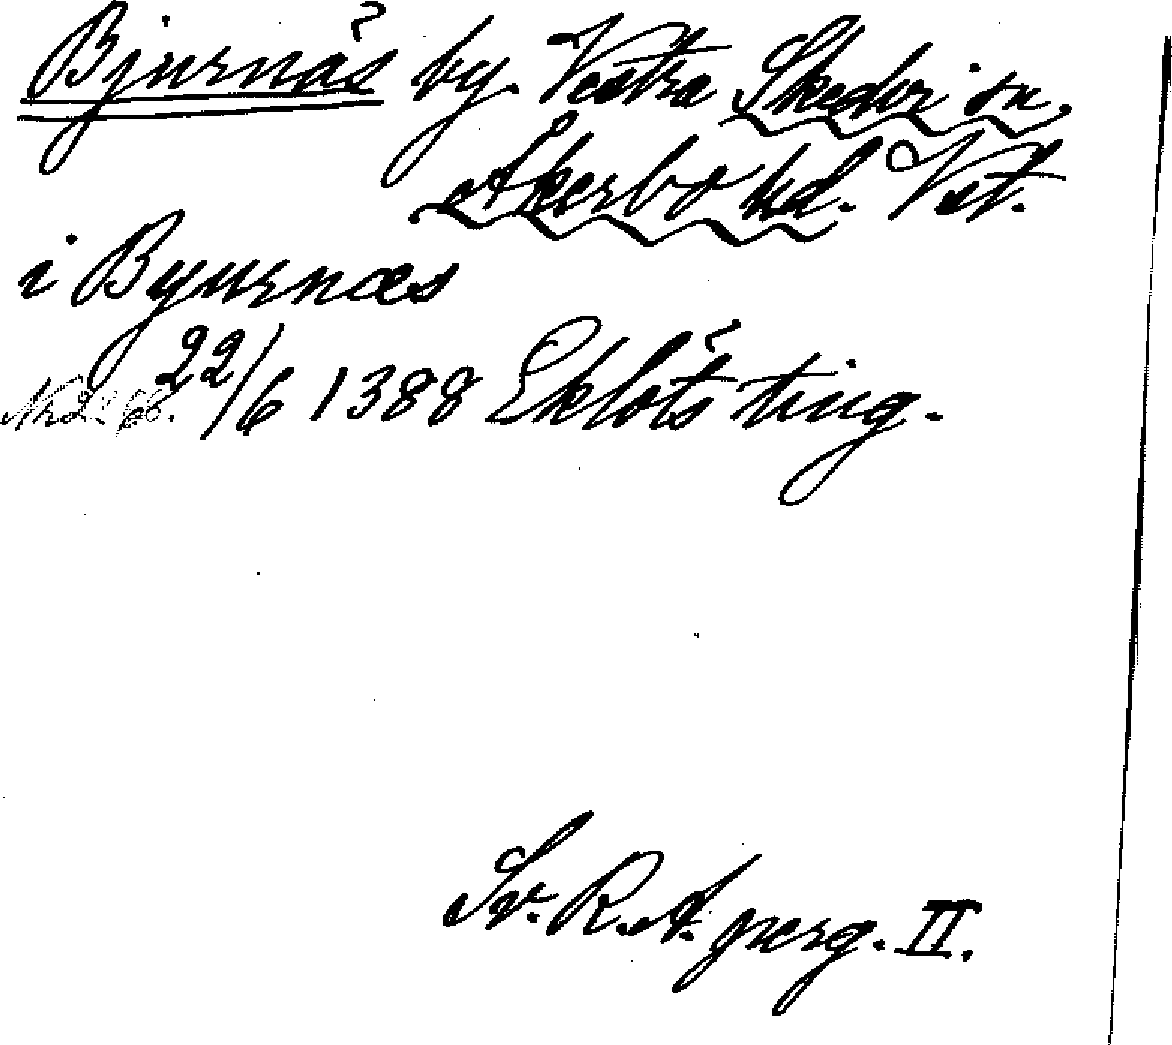 Bjurnäs by. Vestra Skedvi sn.
Åkerbo hd. Vst.
i Byurnæs
22/6 1388 Eklöts ting.
Sv. R. A. perg. II.